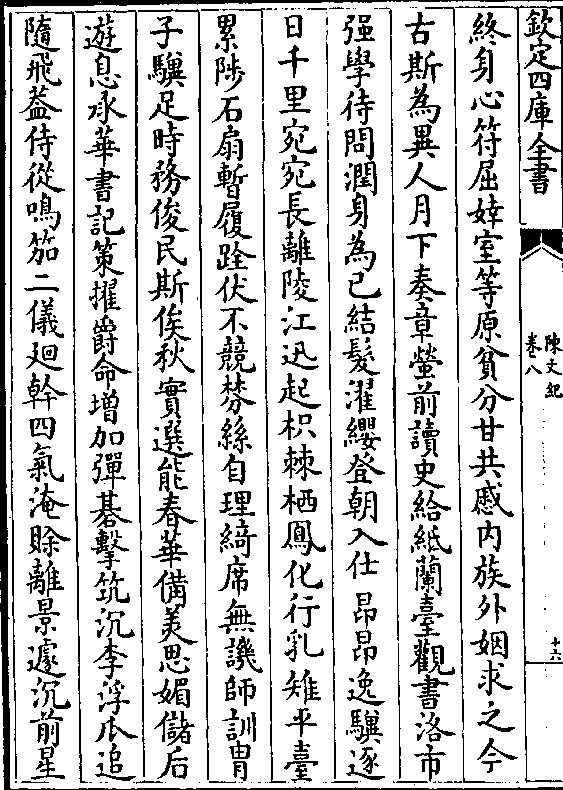 欽定四庫全書
陳文紀
卷八
十六
終身心符屈婞室等原貧分甘共慼内族外姻求之今
古斯為異人月下奏章螢前讀史給紙蘭臺觀書洛市
强學待問潤身為己結髮濯纓登朝入仕昂昂逸驥逐
日千里宛宛長離陵江迅起枳棘栖鳳化行乳雉平臺
累陟石扇暫履跧伏不競棼絲自理綺席無譏師訓胄
子驥足時務俊民斯俟秋實選能春華備美思媚儲后
遊息承華書記策擢爵命增加彈碁擊筑沉李浮瓜追
隨飛葢侍從鳴笳二儀廻斡四氣淹賒離景遽沉前星